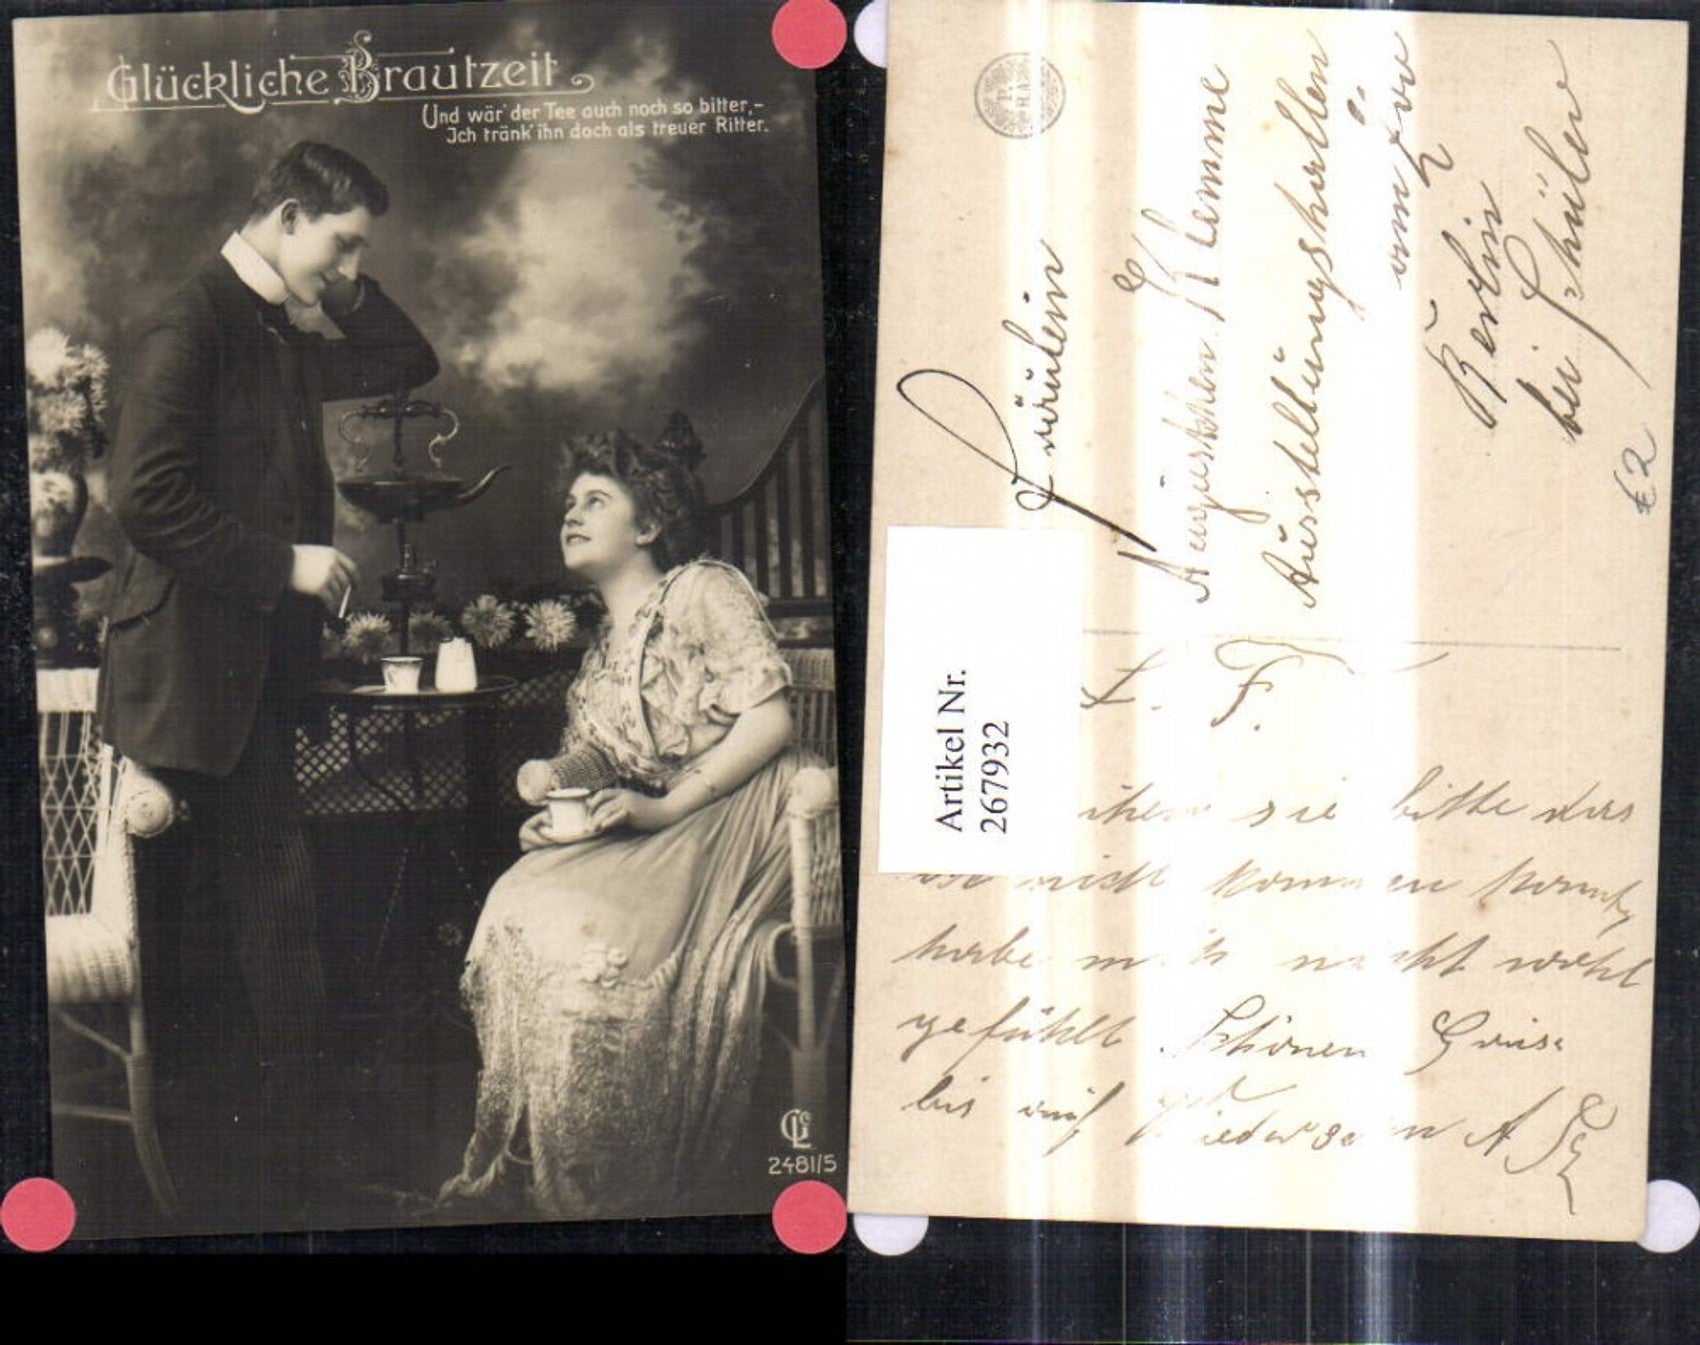 Glückliche Brautzeit
Und wär' der Tee auch noch so bitter,-
Ich tränk' ihn doch als treuer Ritter.
2481/5
Fräulein
Klemme
Ausstellungshallen
am Zoo
Berlin
bei Schüler
€2
Artikel Nr.
267932
L. F.
sie bitte das
ich nicht kommen konnte,
habe mich nicht wohl
gefühlt. Schönen Gruss
bis auf
Wiedersehen A